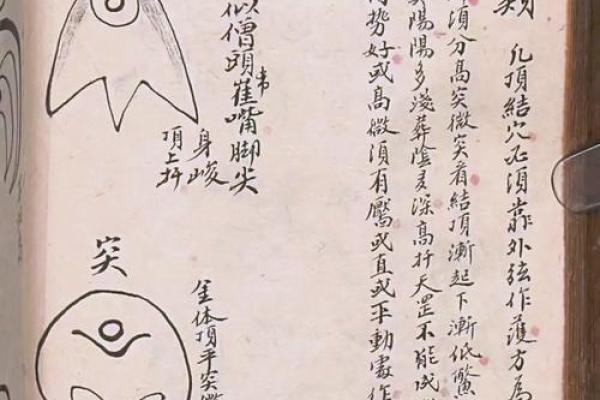 類
凡頂結穴必須靠外弦作護方為
須分高突微突者結頂漸起下漸低
陽陽多淺葬陰多深高扦天罡不能成
勢好或高微須有靨或直或平動處作
似僧頭雀嘴脚尖
身峻
頂上扦
突
全体頂平突微